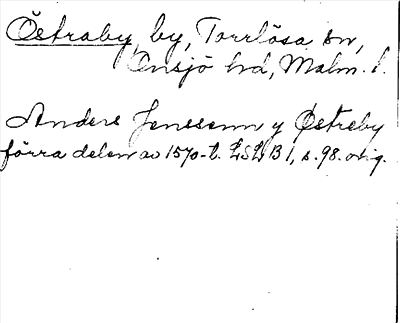 Östraby, by, Torrlösa sn,
Onsjö hd, Malm. l.
Anders Jenssenn y Østreby
förra delen av 1570-t. LSLB 1, s. 98. orig.